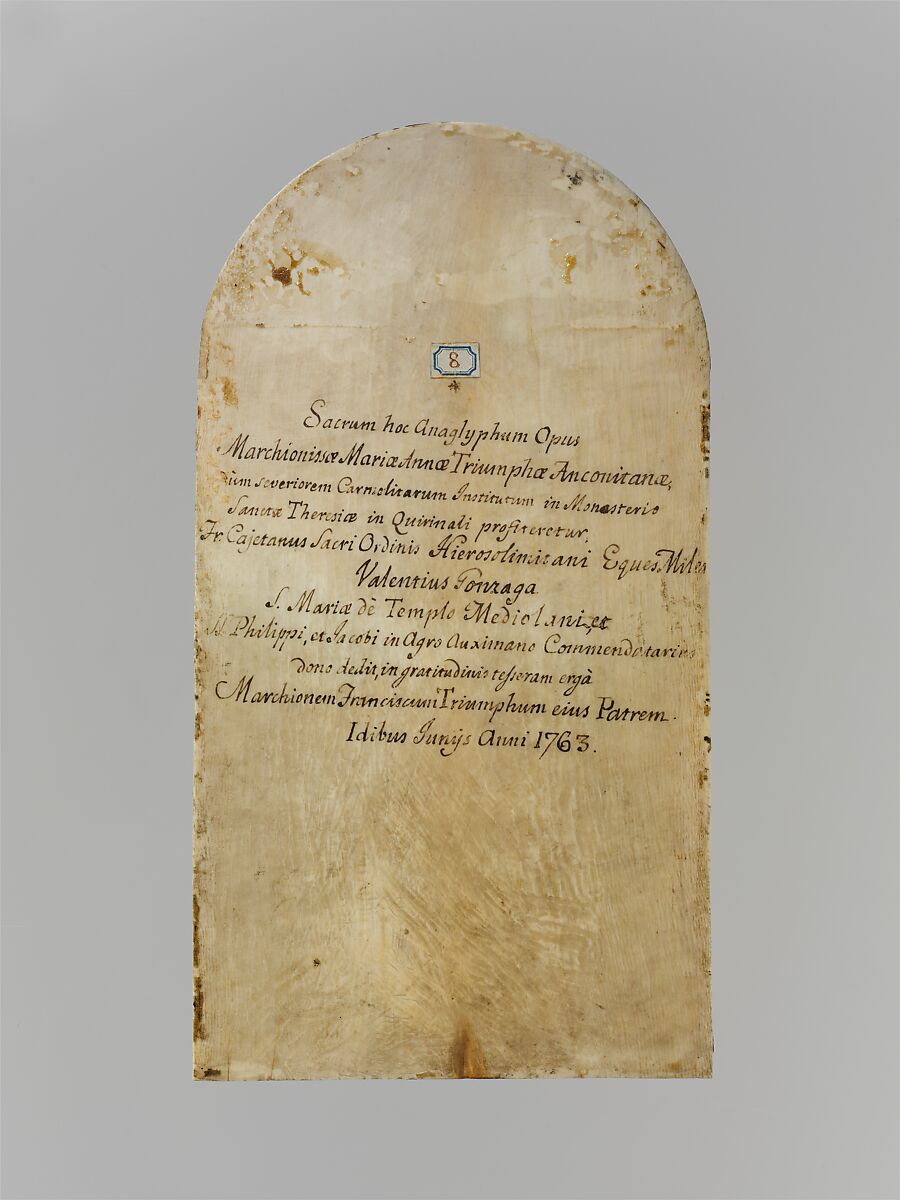 8
*
Sacrum hoc Anaglyphum Opus
Marchionissæ Mariæ Annæ Triumphæ Anconitanæ,
dum severiorem Carmelitarum Institutum in Monasterio
Sanctæ Theresiæ in Quirinali profiteretur,
Fr. Cajetanus Sacri Ordinis Hierosolimitani Eques Miles
Valentius Gonzaga
S. Mariæ dè Templo Mediolani, et
SS. Philippi, et Jacobi in Agro Auximano Commendatarius
dono dedit, in gratitudinis tesseram ergà
Marchionem Franciscum Triumphum eius Patrem.
Idibus Junijs Anni 1763.